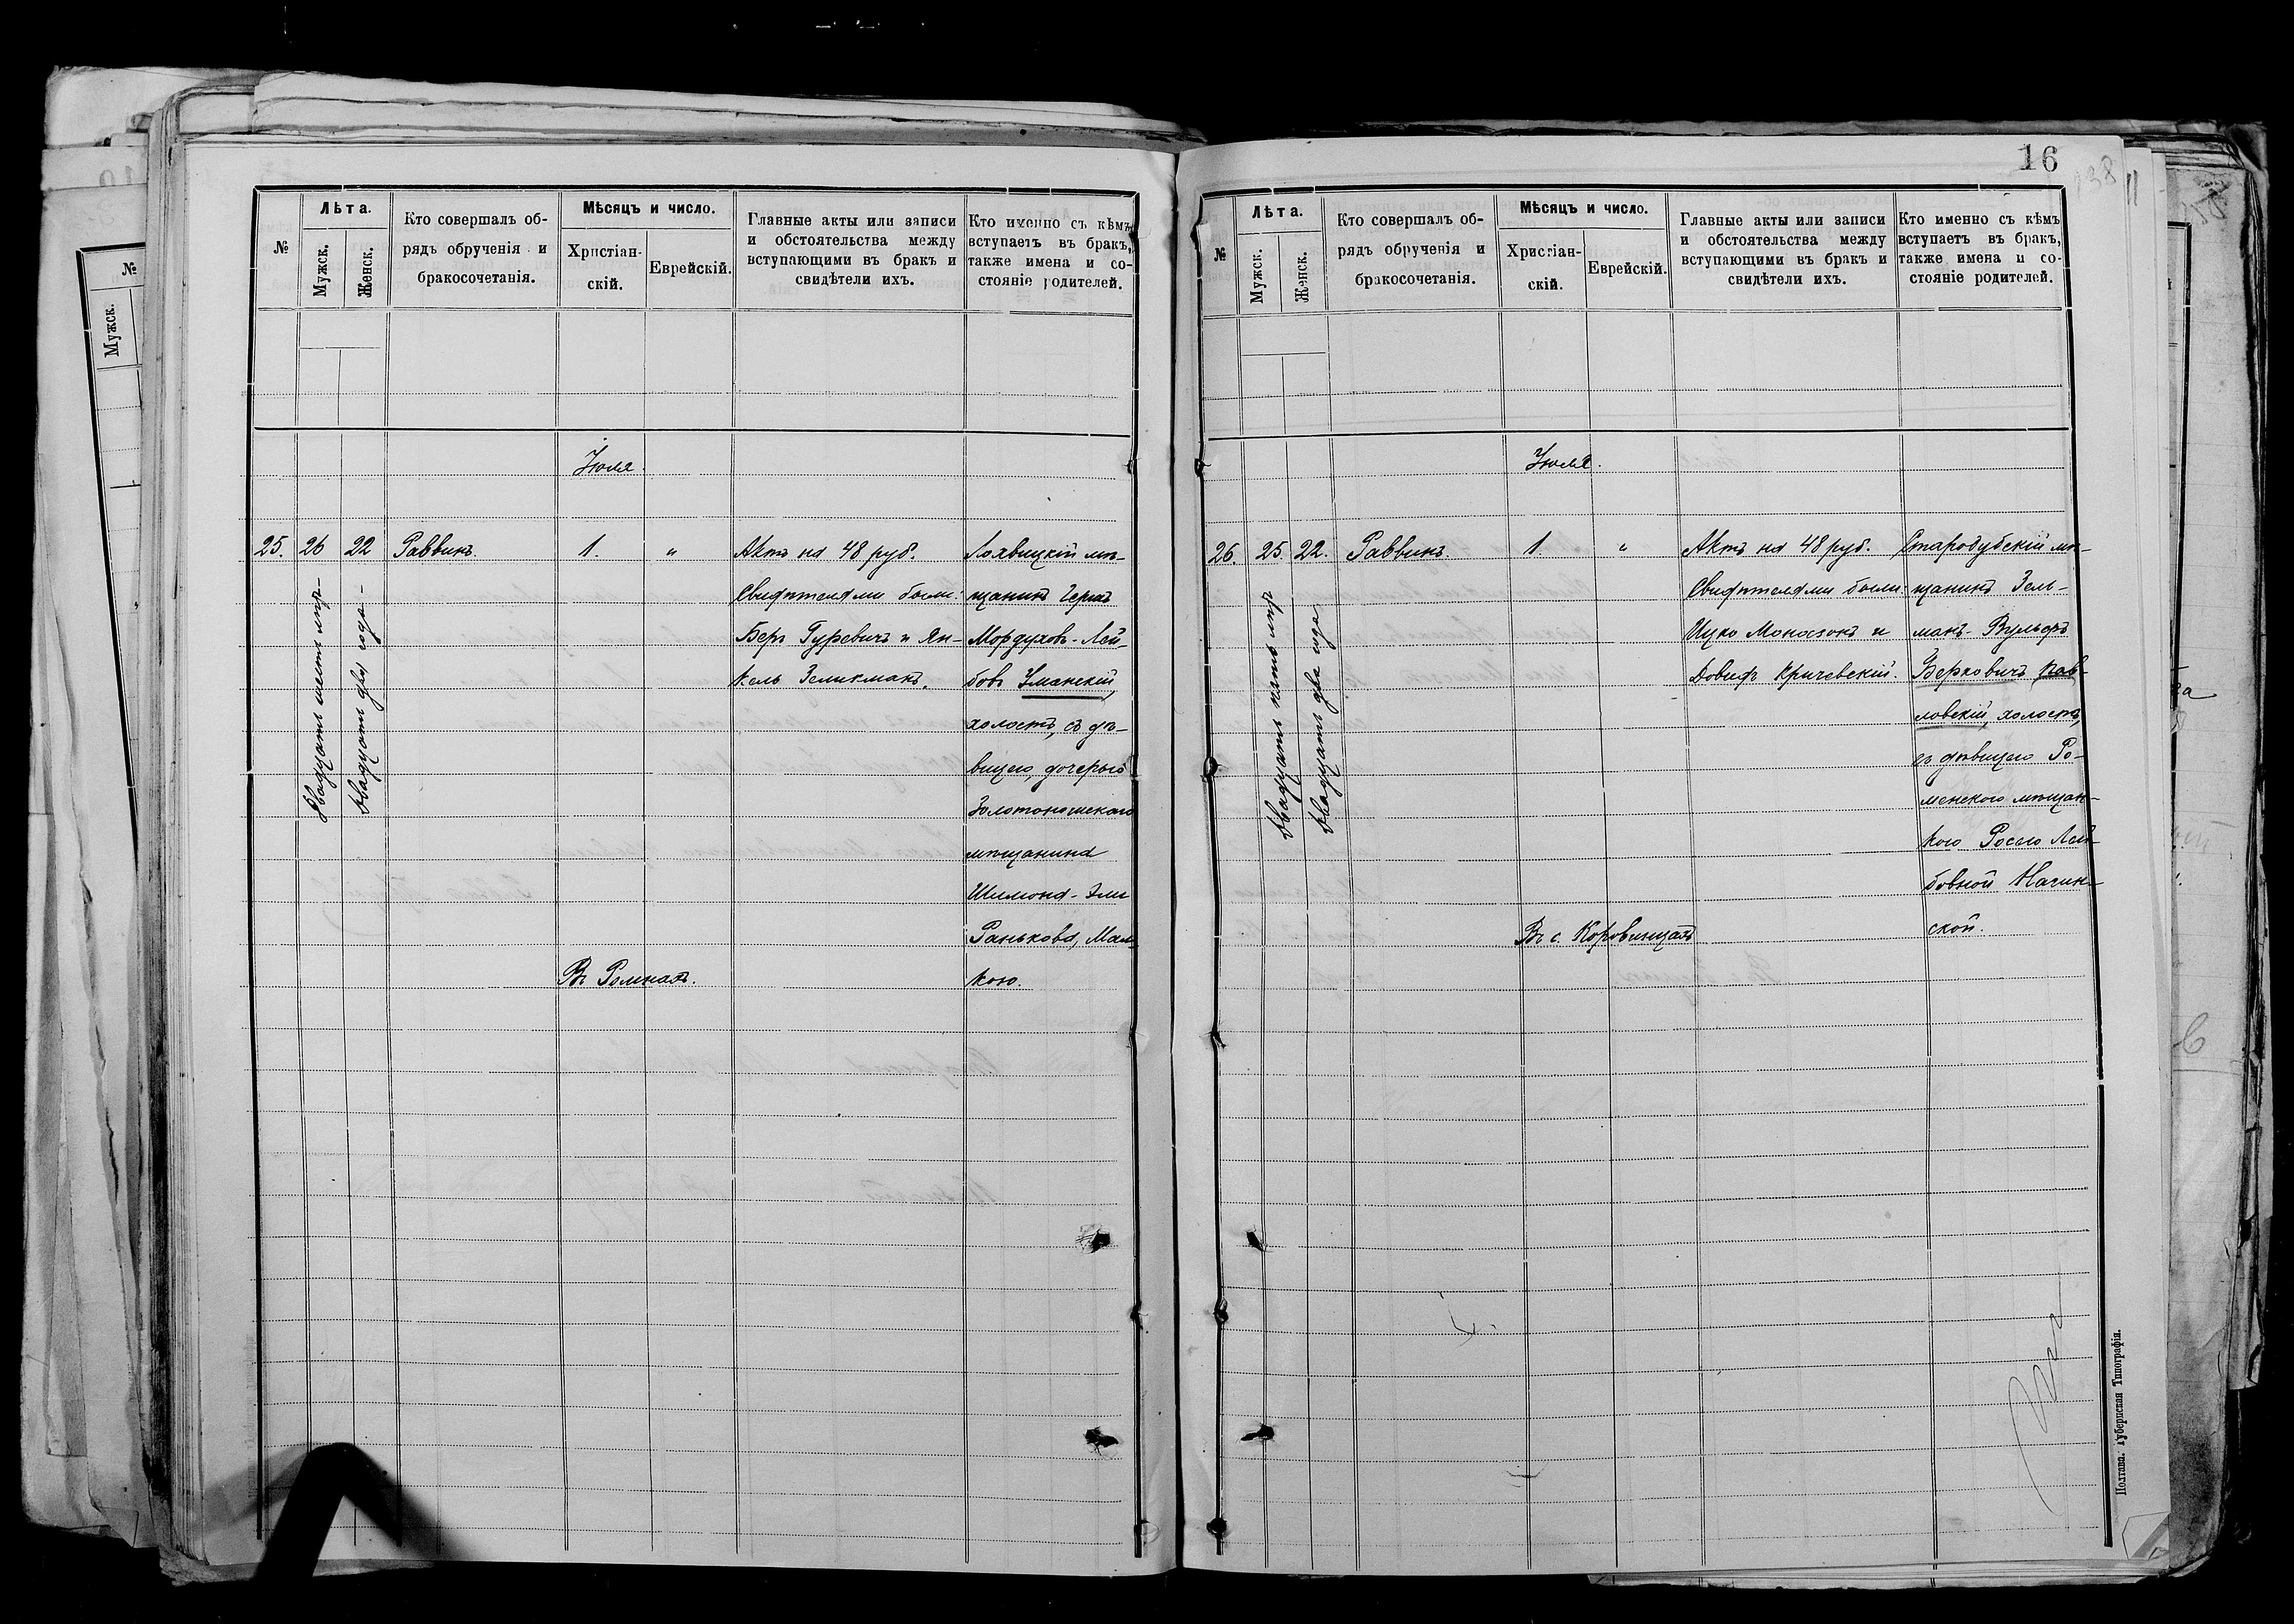 №
Лѣта.
Мужск.
Женск.
Кто совершалъ об-
рядъ обрученія и
бракосочетанія.
Мѣсяцъ и число.
Христіан-
скій.
Еврейскій.
Главные акты или записи
и обстоятельства между
вступающими въ бракъ и
свидѣтели ихъ.
Кто именно съ кѣмъ
вступаетъ въ бракъ,
также имена и со-
стояніе родителей.
Іюля.
25.
26
двадцать шесть лѣтъ
22
двадцать два года
Раввинъ.
1.
"
Въ Ромнахъ.
Актъ на 48 руб.
Свидѣтелями были:
Беръ Гуревичъ и Ян-
кель Зеликманъ.
Лохвицкій мѣ-
щанинъ Герш
Мордуховъ-Лей-
бовъ Уманскій,
холостъ, съ дѣ-
вицею, дочерью
Золотоношскаго
мѣщанина
Шимона-Эли
Ранькова, Мал-
кою.
16
138
№
Лѣта.
Мужск.
Женск.
Кто совершалъ об-
рядъ обрученія и
бракосочетанія.
Мѣсяцъ и число.
Христіан-
скій.
Еврейскій.
Главные акты или записи
и обстоятельства между
вступающими въ бракъ и
свидѣтели ихъ.
Кто именно съ кѣмъ
вступаетъ въ бракъ,
также имена и со-
стояніе родителей.
Іюля.
26.
25.
двадцать пять лѣтъ
22.
двадцать два года
Раввинъ
1.
"
Въ с. Коровинцахъ
Актъ на 48 руб.
Свидѣтелями были
Ицко Моносзонъ и
Довидъ Кричевскій.
Стародубскій мѣ-
щанинъ Зель-
манъ-Вульфъ
Берковичъ Пав-
ловскій, холостъ,
съ дѣвицею Ро-
менскою мѣщан-
кою Росею Лей-
бовной Нагин-
ской.
Полтава. Губернская Типографія.
№
Мужск.